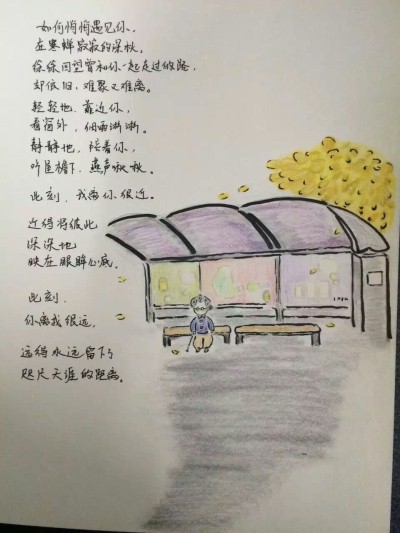 如何悄悄遇见你,
在寒蝉寂寂的深秋。
徐徐回望曾和你一起走过的路,
却依旧,难聚又难离。
轻轻地,靠近你,
看窗外,细雨淅淅。
静静地,陪着你,
听屋檐下,燕声啾啾。
此刻,我离你很近。
近得将彼此
深深地
映在眼眸心底。
此刻,
你离我很远。
远得永远留下了
咫尺天涯的距离。